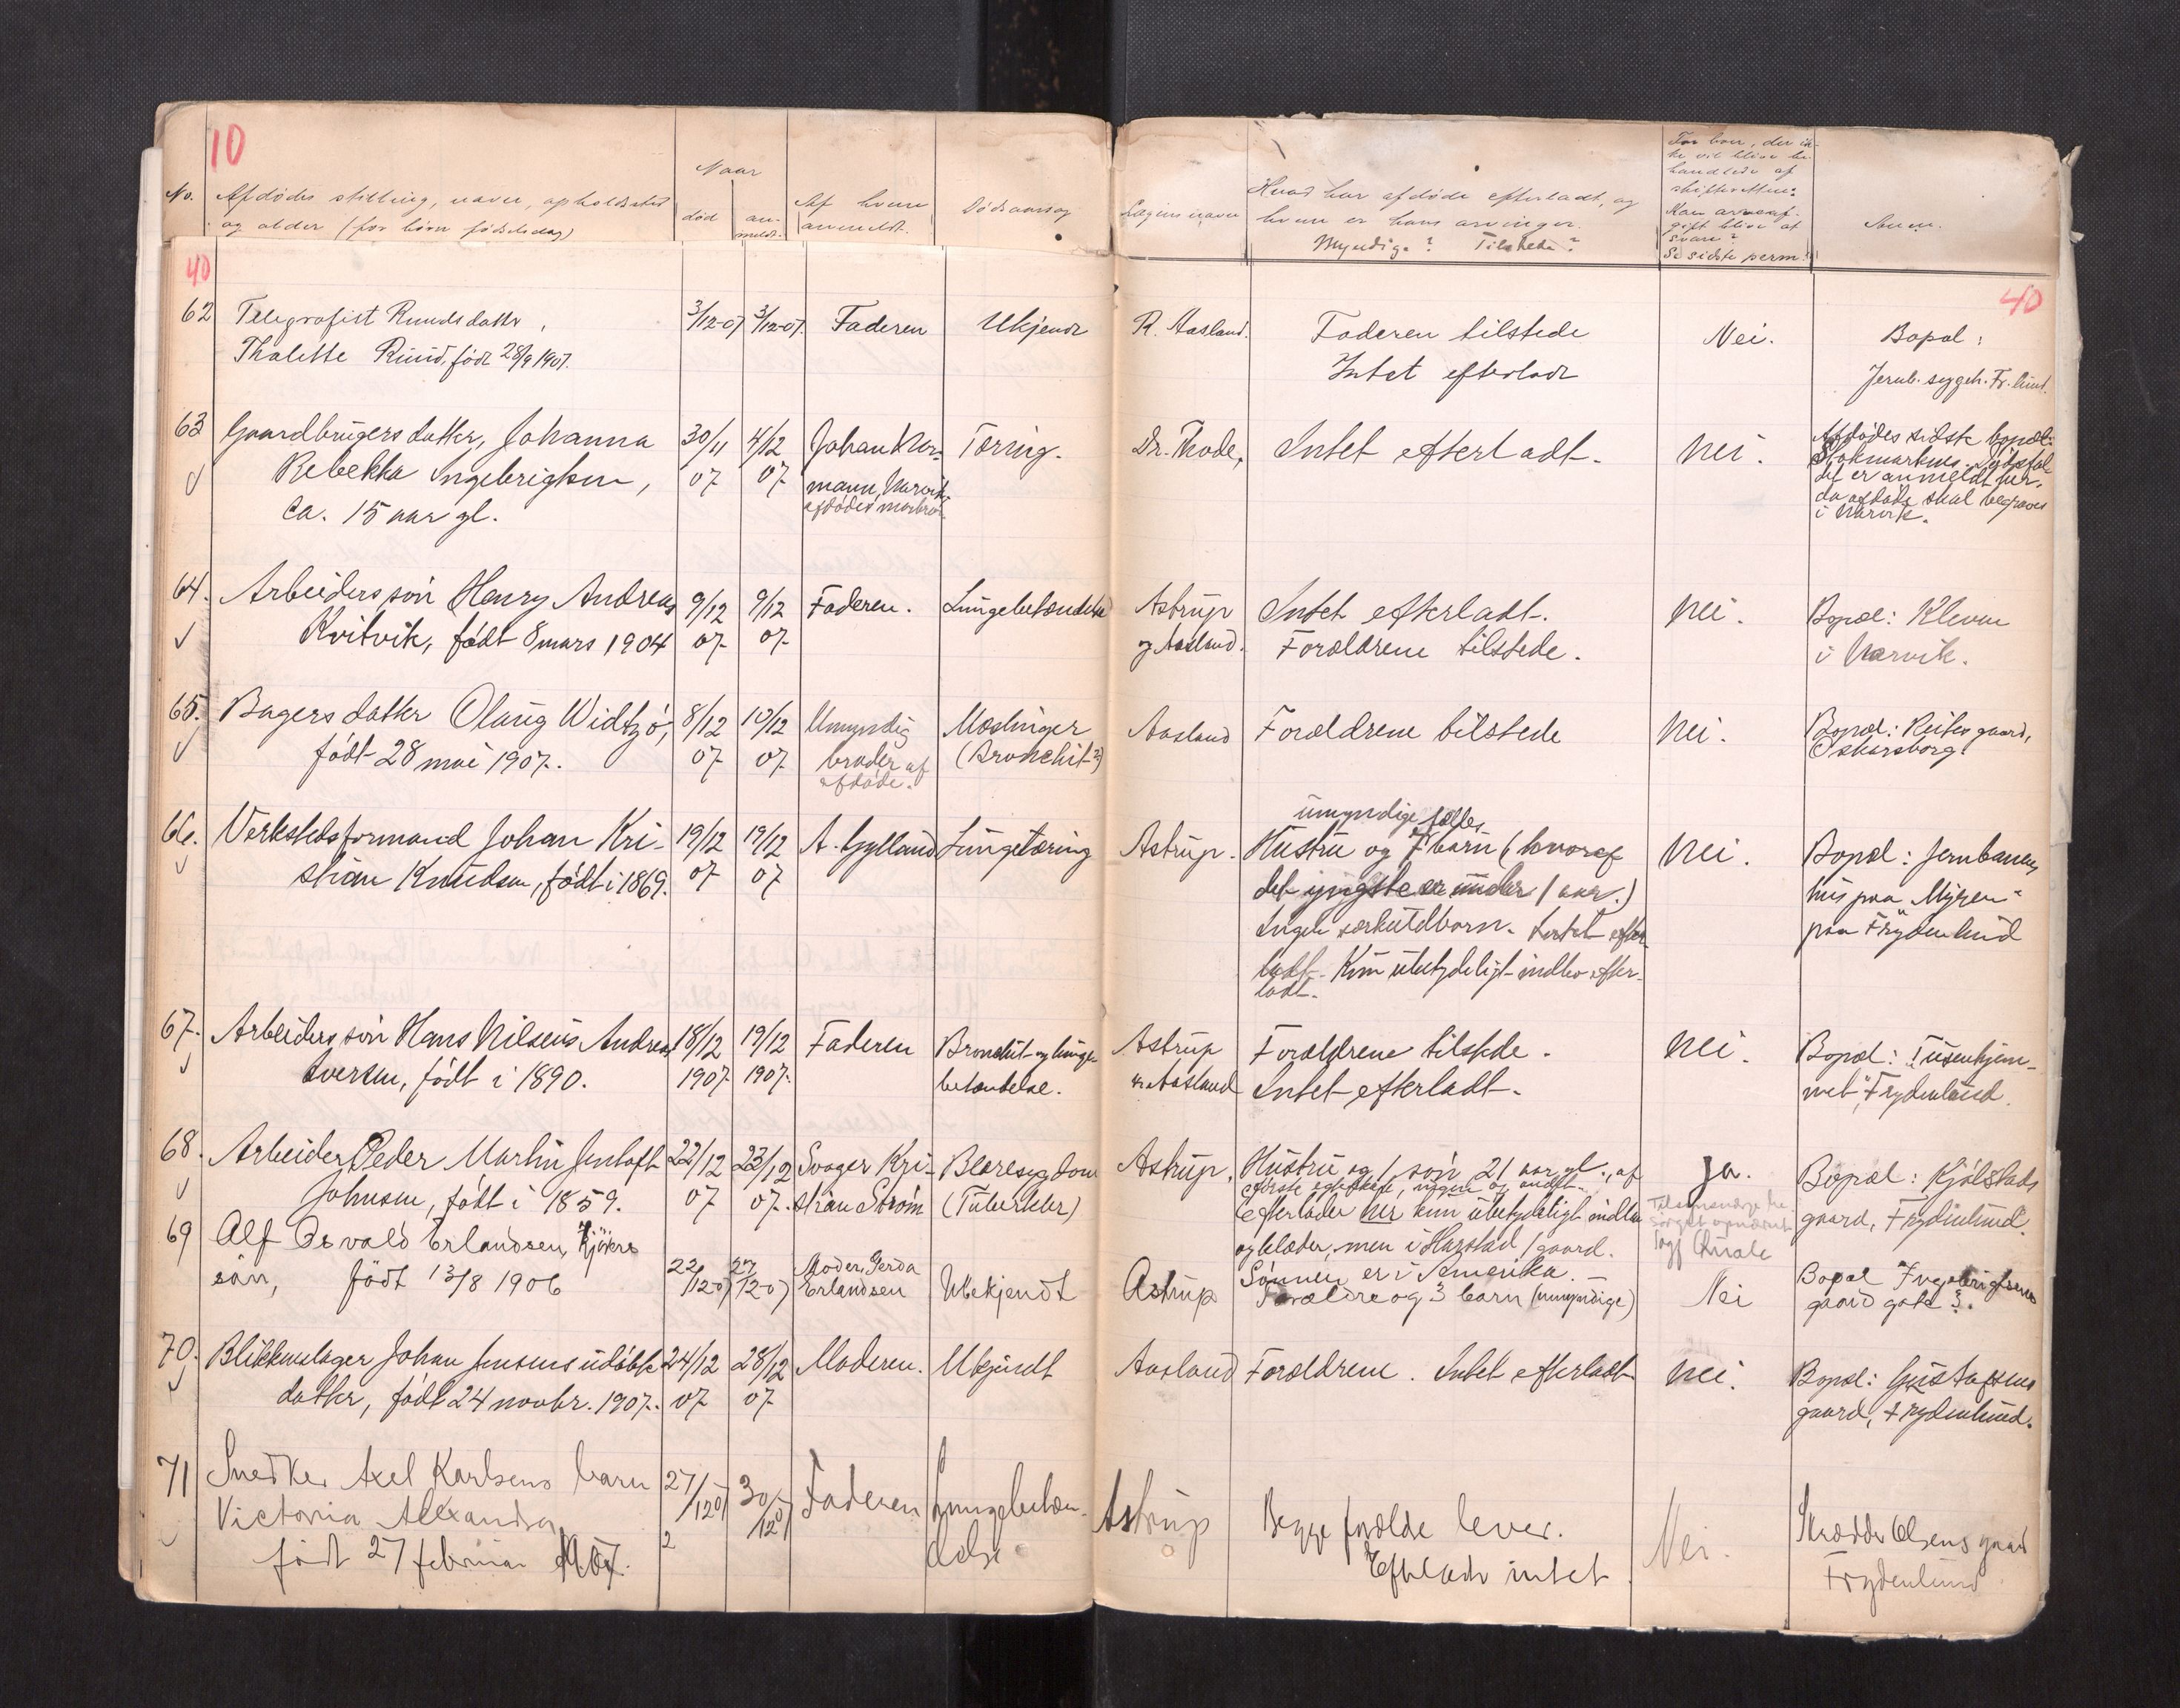 10
No.
Afdødes stilling, navn, opholdssted
og alder (for børn fødselsdag)
Naar
død
an-
meldt.
Af hvem
anmeldt.
Dødsaarsag
Lægens navn
Hvad har afdøde efterladt, og
hvem er hans arvinger.
Myndige? Tilstede?
For boer, der ik-
ke vil blive be-
handlede af
skifteretten:
Kan arveaf-
gift blive at
svare?
Se sidste perm.
Anm.
40
40
62 Telegrafist Ruuds datter,
Thalette Ruud, født 28/9 1907.
3/12-07 3/12-07. Faderen Ukjendt
R. Aasland. Faderen tilstede
Intet efterladt
Nei. Bopæl:
Jernb. sygeh. Fr.lund.
63 Gaardbrugers datter, Johanna
Rebekka Ingebrigtsen,
ca. 15 aar gl.
30/11 07 4/12 07
Johan Nor-
mann, Narvik,
afdødes morbror.
Tæring.
Dr. Thode, Intet efterladt. nei.
Afdødes sidste bopæl:
Stokmarknes. Dødsfal-
det er anmeldt her,
da afdøde skal begraves
i Narvik.
64. Arbeiders søn Henry Andreas
Kvitvik, født 8 mars 1904
9/12 07 9/12 07 Faderen. Lungebetændelse
Astrup
og Aasland.
Intet efterladt.
Forældrene tilstede.
nei. Bopæl: Kleven
i Narvik.
65. Bagers datter Olaug Widtzø,
født 28 mai 1907.
8/12 07 10/12 07
Umyndig
broder af
afdøde.
Mæslinger
(Bronchit?)
Aasland Forældrene tilstede nei.
Bopæl: Reites gaard,
Oskarsborg.
66. Verkstedsformand Johan Kri-
stian Knudsen, født i 1869.
19/12 07 19/12 07 A. Gylland Lungetæring
Astrup.
umyndige fælles
Hustru og 7 barn (hvoraf
det yngste er under 1 aar.)
Ingen særkuldbarn. Intet efter-
ladt. Kun ubetydeligt indbo efter-
ladt.
nei. Bopæl: Jernbanens
hus paa "Myren"
paa Frydenlund
67. Arbeiders søn Hans Nilseus Andreas
Iversen, født i 1890.
18/12 1907 19/12 1907. Faderen
Bronchit og lunge-
betændelse.
Astrup
og Aasland
Forældrene tilstede.
Intet efterladt.
nei. Bopæl: "Tusenhjem-
met", Frydenlund.
68. Arbeider Peder Martin Jentoft
Johnsen, født i 1859.
22/12 07 23/12 07.
Svoger Kri-
stian Strøm
Blæresygdom
(Tuberkler)
Astrup. Hustru og 1 søn 21 aar gl., af
første egteskab,
Efterlader her kun ubetydeligt indbo
og klæder, men i Harstad 1 gaard.
Sønnen er i Amerika.
Ja.
Bopæl: Kjølstads
gaard, Frydenlund.
69 Alf Osvald Erlandsen, Kjøreres
søn, født 13/8 1906
22/12-07 27/12-07
Moder, Gerda
Erlandsen
Ubekjendt
Astrup Forældre og 3 barn (umyndige)
Nei Bopæl Ingebrigtsens
gaard gate 3.
70. Blikkenslager Johan Jensens udøbte
datter, født 24 novbr. 1907.
24/12 07 28/12 07 Moderen. Ukjendt
Aasland Forældrene. Intet efterladt nei.
Bopæl: Gustafsens
gaard, Frydenlund.
71 Snedker Axel Karlsens barn
Victoria Alexandra,
født 27 februar 1907.
27/12 07 30/12 07 Faderen
Lungebetæn-
delse
Astrup Begge forældre lever.
Efterladt intet
Nei. Skrædder Olsens gaard
Frydenlund